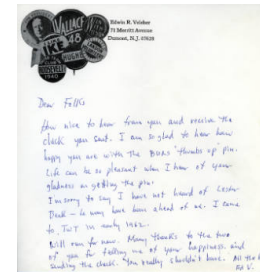 WALLACE
48
1940
Edwin R. Veisber
71 Merritt Avenue
Dumont, N.J. 07628
Dear Folks
How nice to hear from you and receive the
check you sent. I am so glad to hear how
happy you are with the "thumbs up" pin.
Life can be so pleasant when I hear of your
gladness in getting the pin.
I'm sorry to say I have not heard of Lester
- he may have been ahead of me. I came
to in early 1962.
Will run for now. Many thanks to the two
of you for telling me of your happiness and
sending the check. You really shouldn't have. All the